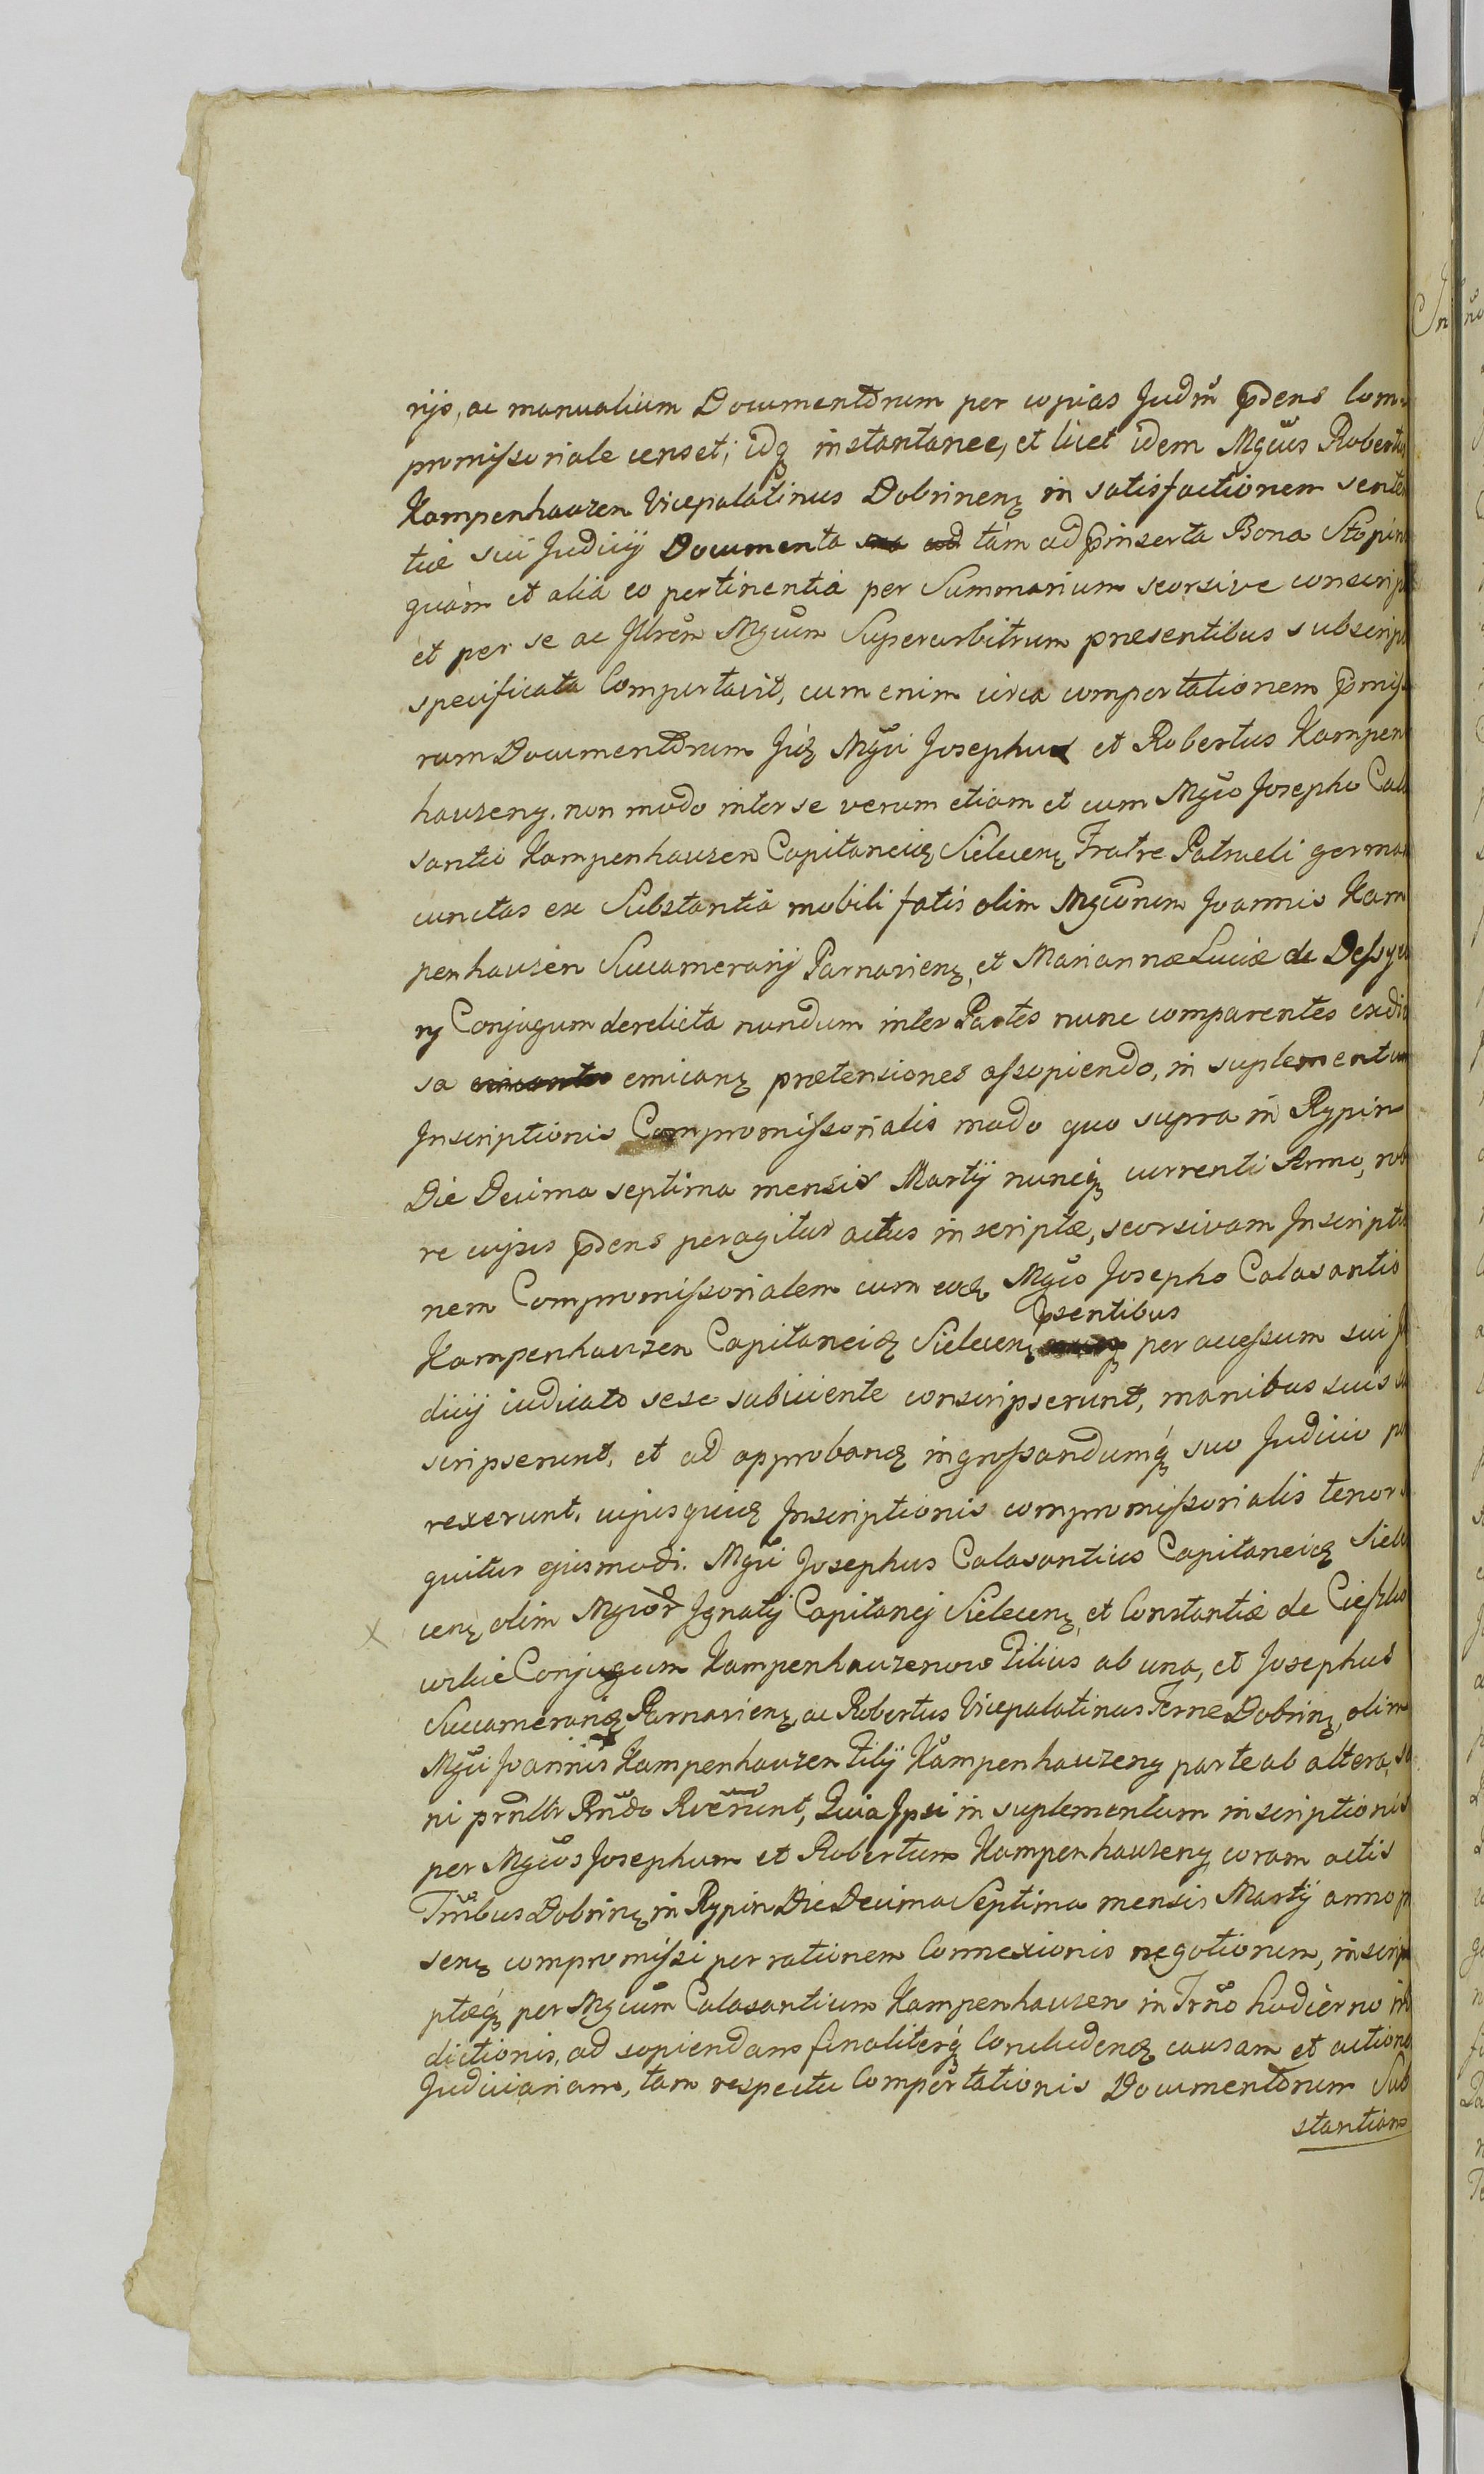 rijs, ac manualium Documentorum per copias Judm pdens Com-
promissoriale censet; idq instantanee, et licet idem Mgcus Robertus
Kampenhauzen Vicepalatinus Dobrinens in satisfactionem senten
tiæ sui Judicij Documenta tam ad pinserta Bona Stopin
quàm et alia eo pertinentia per Summarium seorsive conscrip
et per se ac Illrem Mgcum Superarbitrum præsentibus subscrip
specificata Comportavit, cum enim circa comportationem pmiss
rum Documentorum iid Mgci Josephus et Robertus Kampen
hauzeny. non modo inter se verum etiam et cum Mgco Josepho Cala
santio Kampenhauzen Capitaneid Sielecens Fratre Patrueli german
cunctas ex Substantia mobili fatis olim Mgcorum Joannis Kam
penhauzen Succamerarij Parnaviens, et Mariannæ Luciæ de
ry Conjugum derelicta nundum inter Partes nunc comparentes exdivi
sa emicans prætensiones assopiendo, in suplementum
Inscriptionis Compromissorialis modo quo supra in Rypin
Die Decima septima mensis Martij nuncq currenti Anno,
re cujus pdens peragitur actus inscriptæ, seorsivam Inscriptio
nem Compromissorialem cum eod Mgco Josepho Calasantio
psentibus
Kampenhauzen Capitaneid Sielecens per accessum sui Ju
dicij iudicato sese subiicente conscripserunt, manibus suis
scripserunt, et ad approband ingrossandumq suo Judicio por
rexerunt. cujusquid Inscriptionis compromissorialis tenor
quitur ejusmodi. Mgci Josephus Calasantius Capitaneid Siele
cens olim Mgcor Ignatij Capitanej Sielecens, et Constantiæ de Cieszko
wskie Conjugum Kampenhauzenow Filius ab una, et Josephus
Succamerarid Parnaviens, ac Robertus Vicepalatinus Terræ Dobrins, olim
Mgci Joannis Kampenhauzen Filij Kampenhauzeny parte ab altera, sa
ni Quia Ipsi in suplementum inscriptionis
per Mgcos Josephum et Robertum Kampenhauzeny coram actis
Trribus Dobrins in Rypin Die Decima Septima mensis Martij anno
sens compromissi per rationem Connexionis negotiorum, inscrip
ptæq per Mgcum Calasantium Kampenhauzen in Trno hodierno
dictionis, ad sopiendam finaliterq Concludend causam et actione
Judiciariam, tam respectu Comportationis Documentorum Sub
stantiam